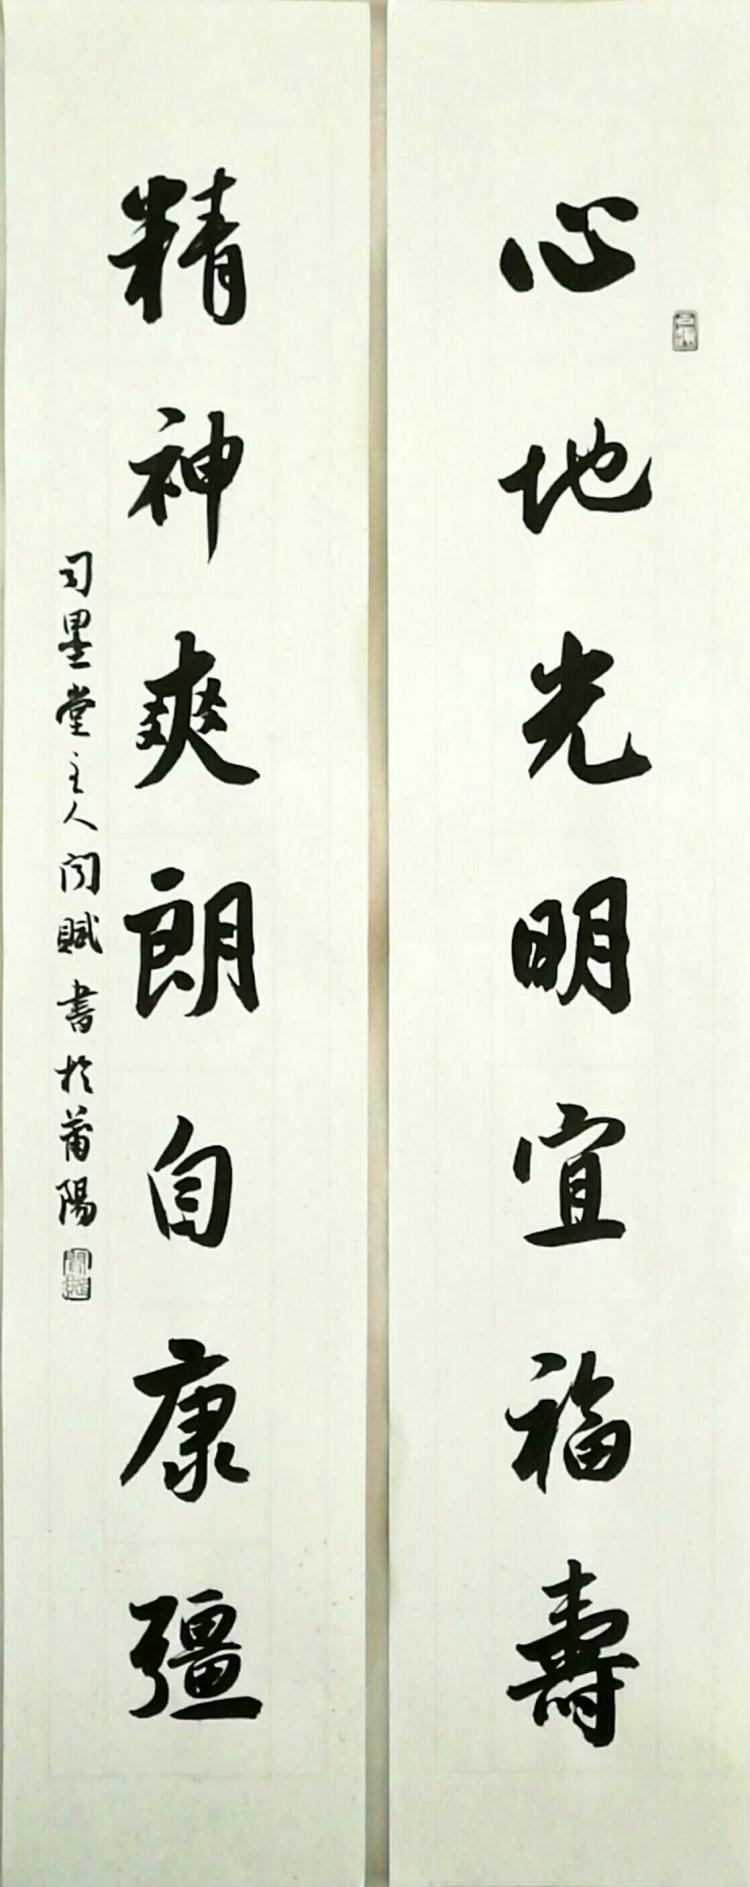 心地光明宜福壽
精神爽朗自康彊
司墨堂主人閆賦書於莆陽